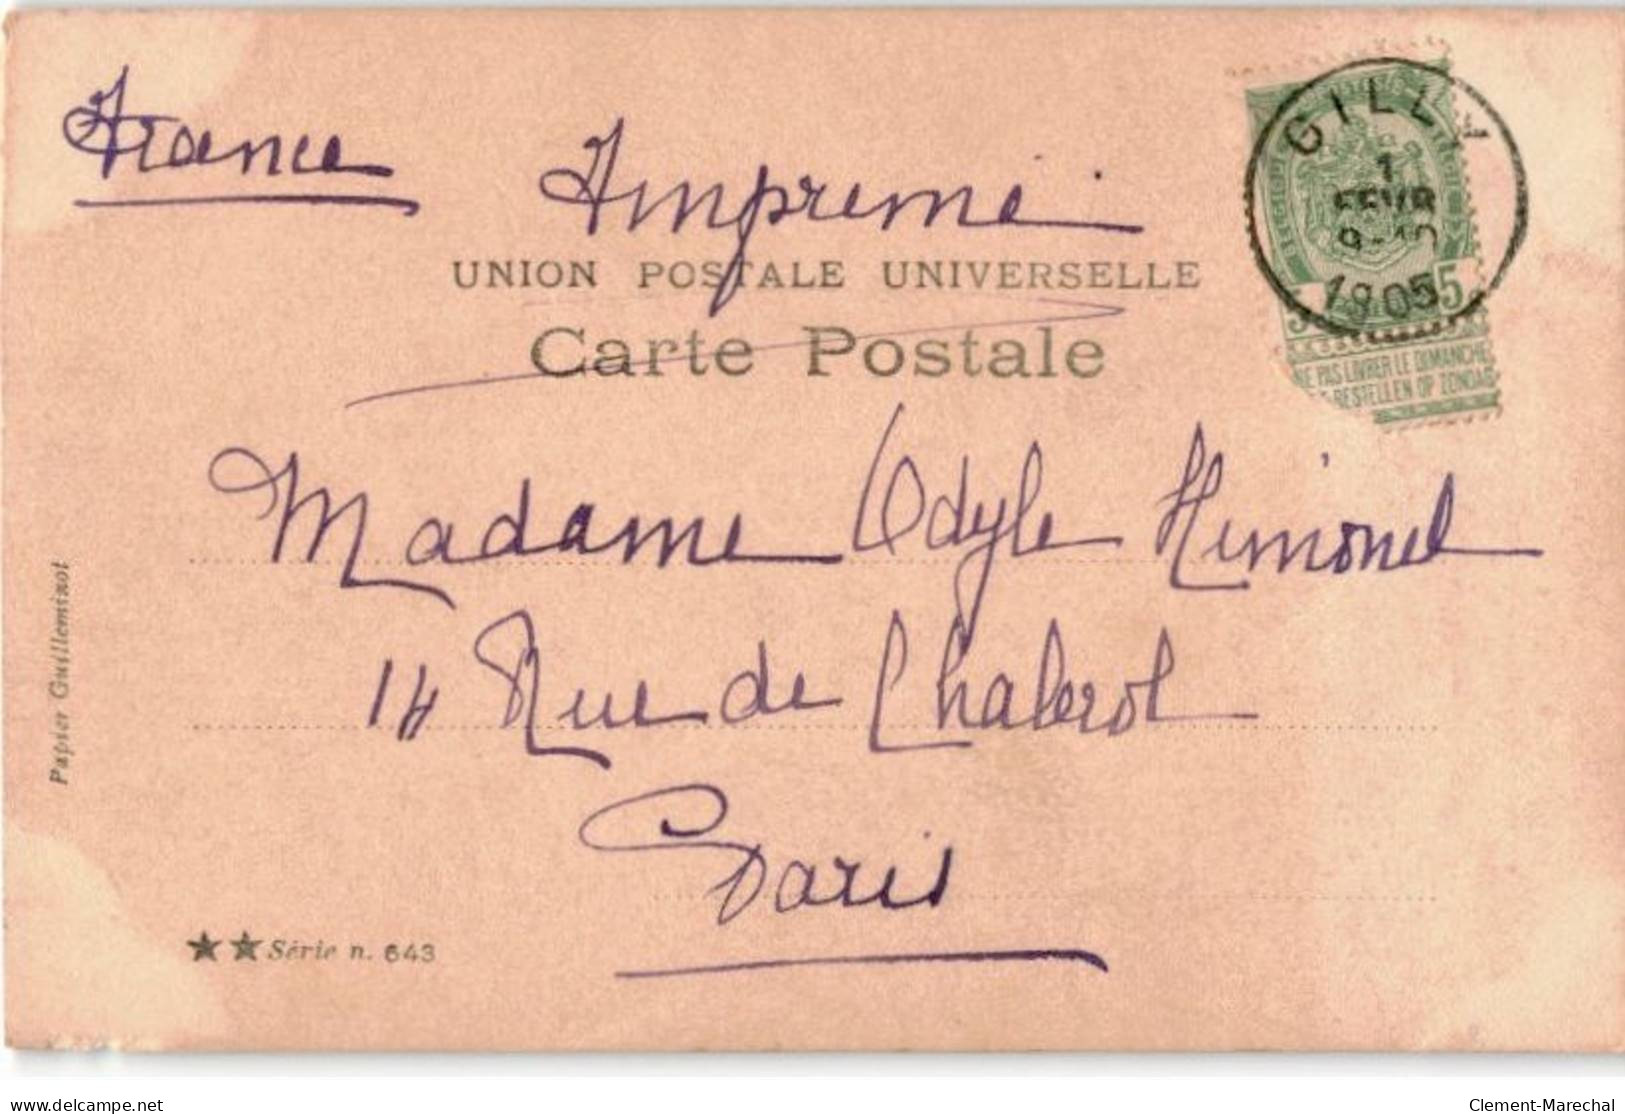 France
Imprimé
GILLY
1
FEVR
9-10
1905
5
NE PAS LIVRER LE DIMANCHE
BESTELLEN OP ZONDAG
UNION POSTALE UNIVERSELLE
Carte Postale
Madame Odyle Himonet
14 Rue de Chaberol
Paris
Papier Guilleminot
★★ Série n. 643
delcampe.net
Clement-Marechal